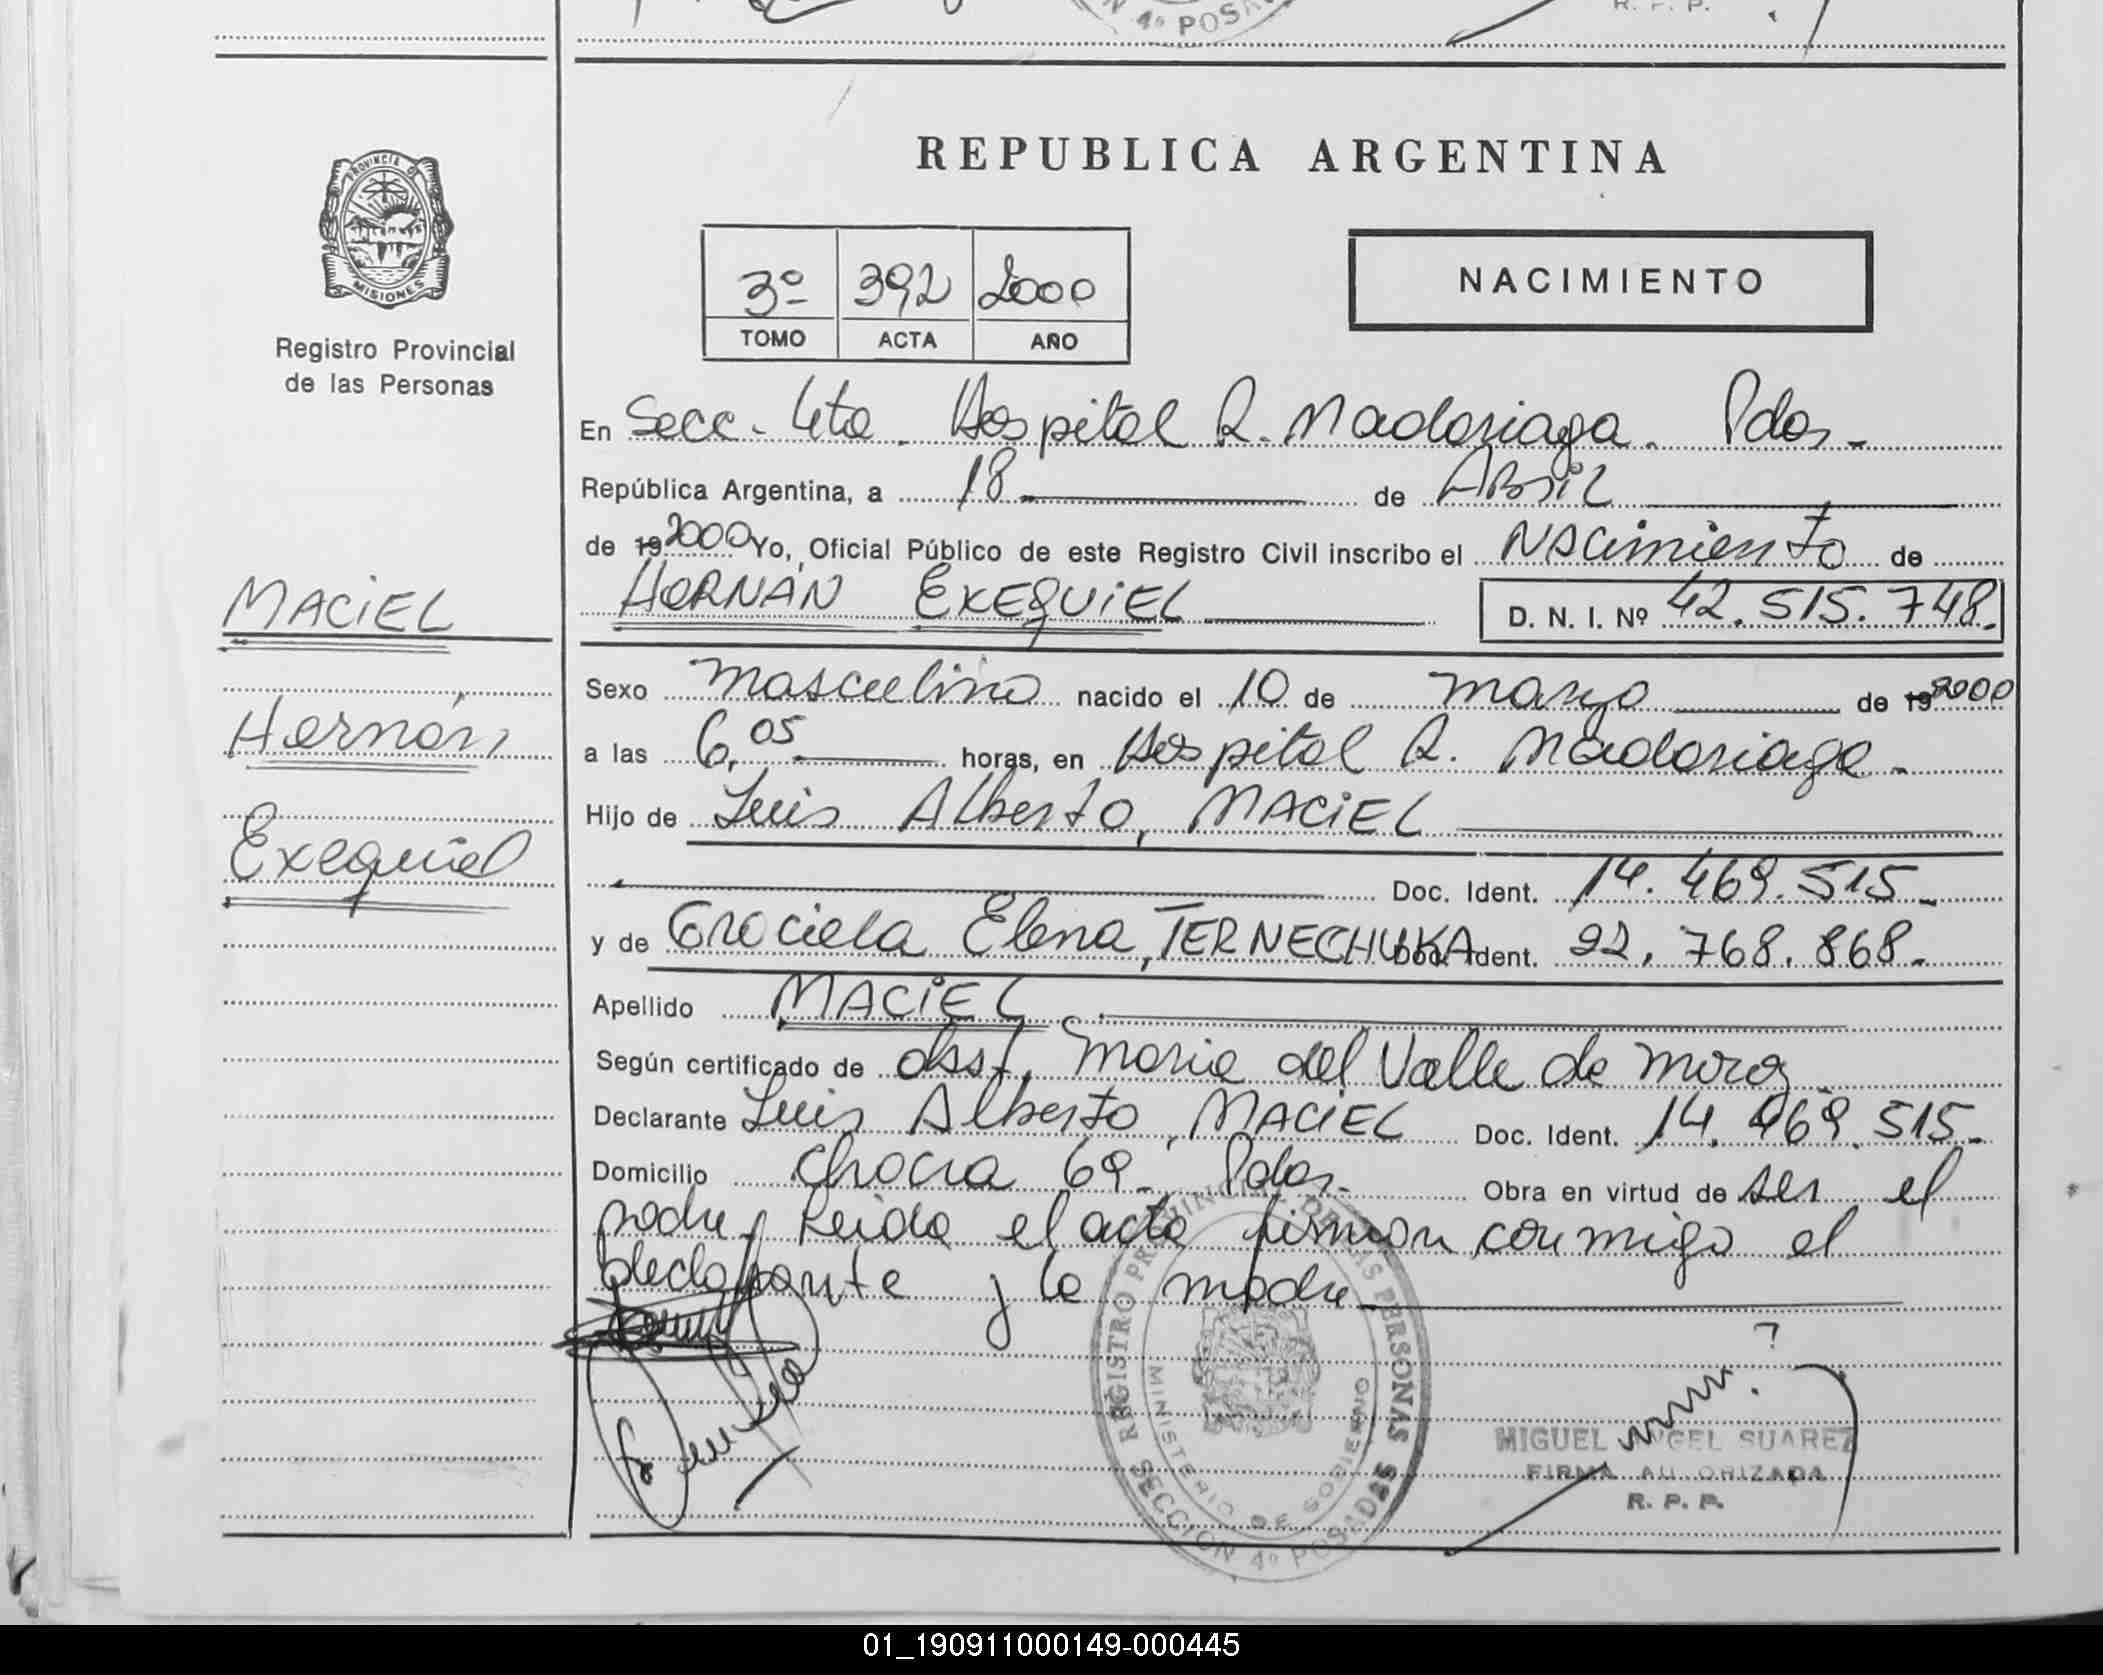 N 4º POSA
R. P. P.
PROVINCIA DE
MISIONES
Registro Provincial
de las Personas
REPUBLICA ARGENTINA
3º 392 2000
TOMO ACTA AÑO
NACIMIENTO
En Secc. 4ta. Hospital R. Madariaga. Pdas.
República Argentina, a 18 de Abril
de 19 2000 Yo, Oficial Público de este Registro Civil inscribo el Nacimiento de
HERNÁN EXEQUIEL D. N. I. Nº 42.515.748.
MACIEL
Hernán
Exequiel
Sexo masculino nacido el 10 de marzo de 19 2000
a las 6,05 horas, en Hospital R. Madariaga.
Hijo de Luis Alberto, MACIEL
Doc. Ident. 14.469.515
y de Graciela Elena, TERNECHUKA Doc. Ident. 22.768.868.
Apellido MACIEL
Según certificado de obst. Maria del Valle de
Declarante Luis Alberto, MACIEL Doc. Ident. 14.469.515.
Domicilio Chacra 69. Pdas. Obra en virtud de ser el
padre. Leida el acta firman conmigo el
declarante y la madre
REGISTRO PROVINCIAL DE LAS PERSONAS
MINISTERIO DE GOBIERNO
SECCION 4º POSADAS
MIGUEL ANGEL SUAREZ
FIRMA AUTORIZADA
R. P. P.
01_190911000149-000445